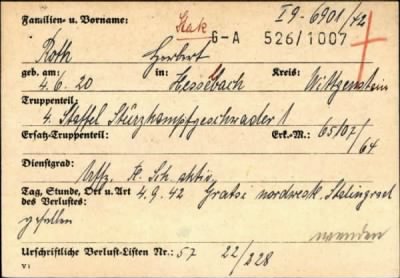 Familien- u. Vorname: Stak I 9-6901/42
G-A 526/1007
Roth Herbert
geb. am: in: Kreis:
4.6.20 Hesselbach Wittgenstein
Truppenteil:
4. Staffel Sturzkampfgeschwader 1
Ersatz-Truppenteil: Erk.-M.: 65107/
64
Dienstgrad:
Uffz. aktiv
Tag, Stunde, Ort u. Art 4.9.42 nordwestl. Stalingrad
des Verlustes:
gefallen
wenden
Urschriftliche Verlust-Listen Nr.: 57 22/228
V 1